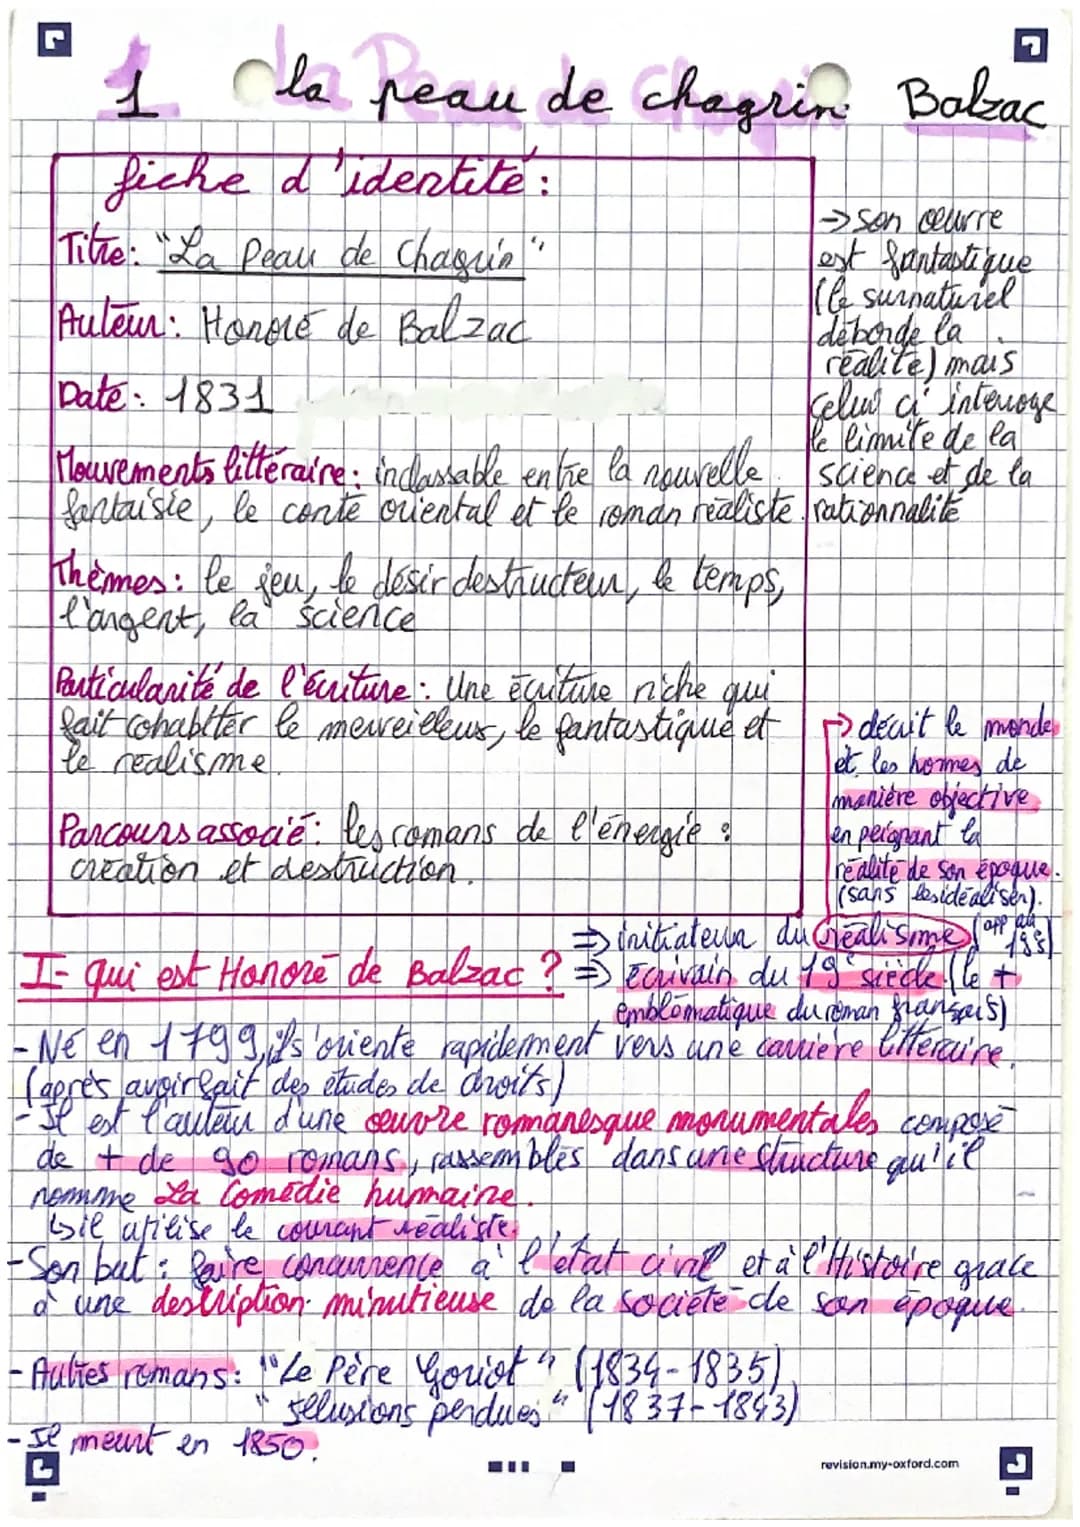 1 la peau de chagrin. Balzac
fiche d'identité:
Titre: "La Peau de Chagrin"
Auteur: Honoré de Balzac
Date: 1831
Mouvements littéraire: inclassable entre la nouvelle
fantaisie, le conte oriental et le roman réaliste.
Thèmes: le jeu, le désir destructeur, le temps,
l'argent, la science
Particularité de l'écriture: Une écriture riche qui
fait cohabiter le merveilleux, le fantastique et
le réalisme.
Parcours associé: les romans de l'énergie:
création et destruction.
→ son œuvre
est fantastique
(le surnaturel
déborde la
réalité) mais
celui ci interroge
le limite de la
science et de la
rationnalité
→ décrit le monde
et les hommes de
manière objective
en peignant la
réalité de son époque.
(sans les idéaliser).
⇒ initiateur du réalisme (app au 19s)
I- qui est Honoré de Balzac? ⇒ écrivain du 19e siècle (le +
emblématique du roman français)
- Né en 1799, il s'oriente rapidement vers une carrière littéraire.
(après avoir fait des études de droits)
- Il est l'auteur d'une œuvre romanesque monumentales composé
de + de 90 romans, rassemblés dans une structure qu'il
nomme La Comédie humaine.
↳ il utilise le courant réaliste.
- Son but: faire concurrence à l'état civil et à l'Histoire grace
à une description minutieuse de la société de son époque.
- Autres romans: "Le Père Goriot" (1834-1835)
"Illusions perdues" (1837-1843)
- Il meurt en 1850.
revision.my-oxford.com